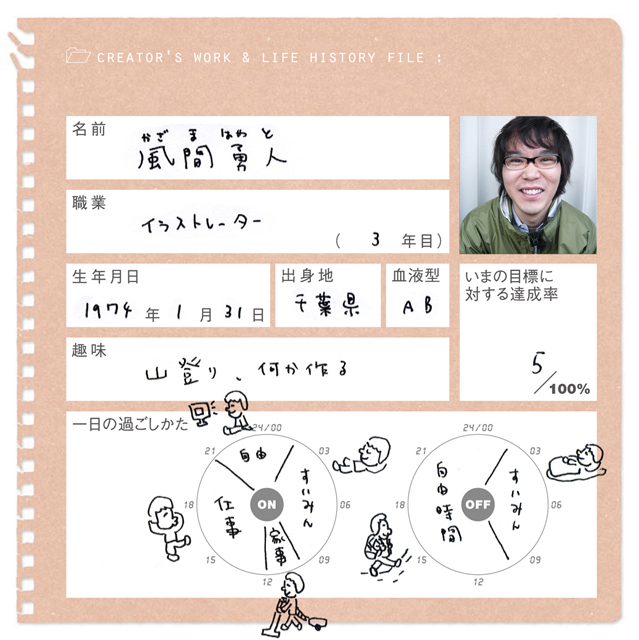 CREATOR'S WORK & LIFE HISTORY FILE :
名前
かざま はやと
風間勇人
職業
イラストレーター
( 3 年目)
生年月日
1974 年 1 月 31 日
出身地
千葉県
血液型
AB
いまの目標に
対する達成率
5/100%
趣味
山登り、何か作る
一日の過ごしかた
24/00
03
06
09
12
15
18
21
ON
自由
すいみん
家事
仕事
24/00
03
06
09
12
15
18
21
OFF
すいみん
自由時間